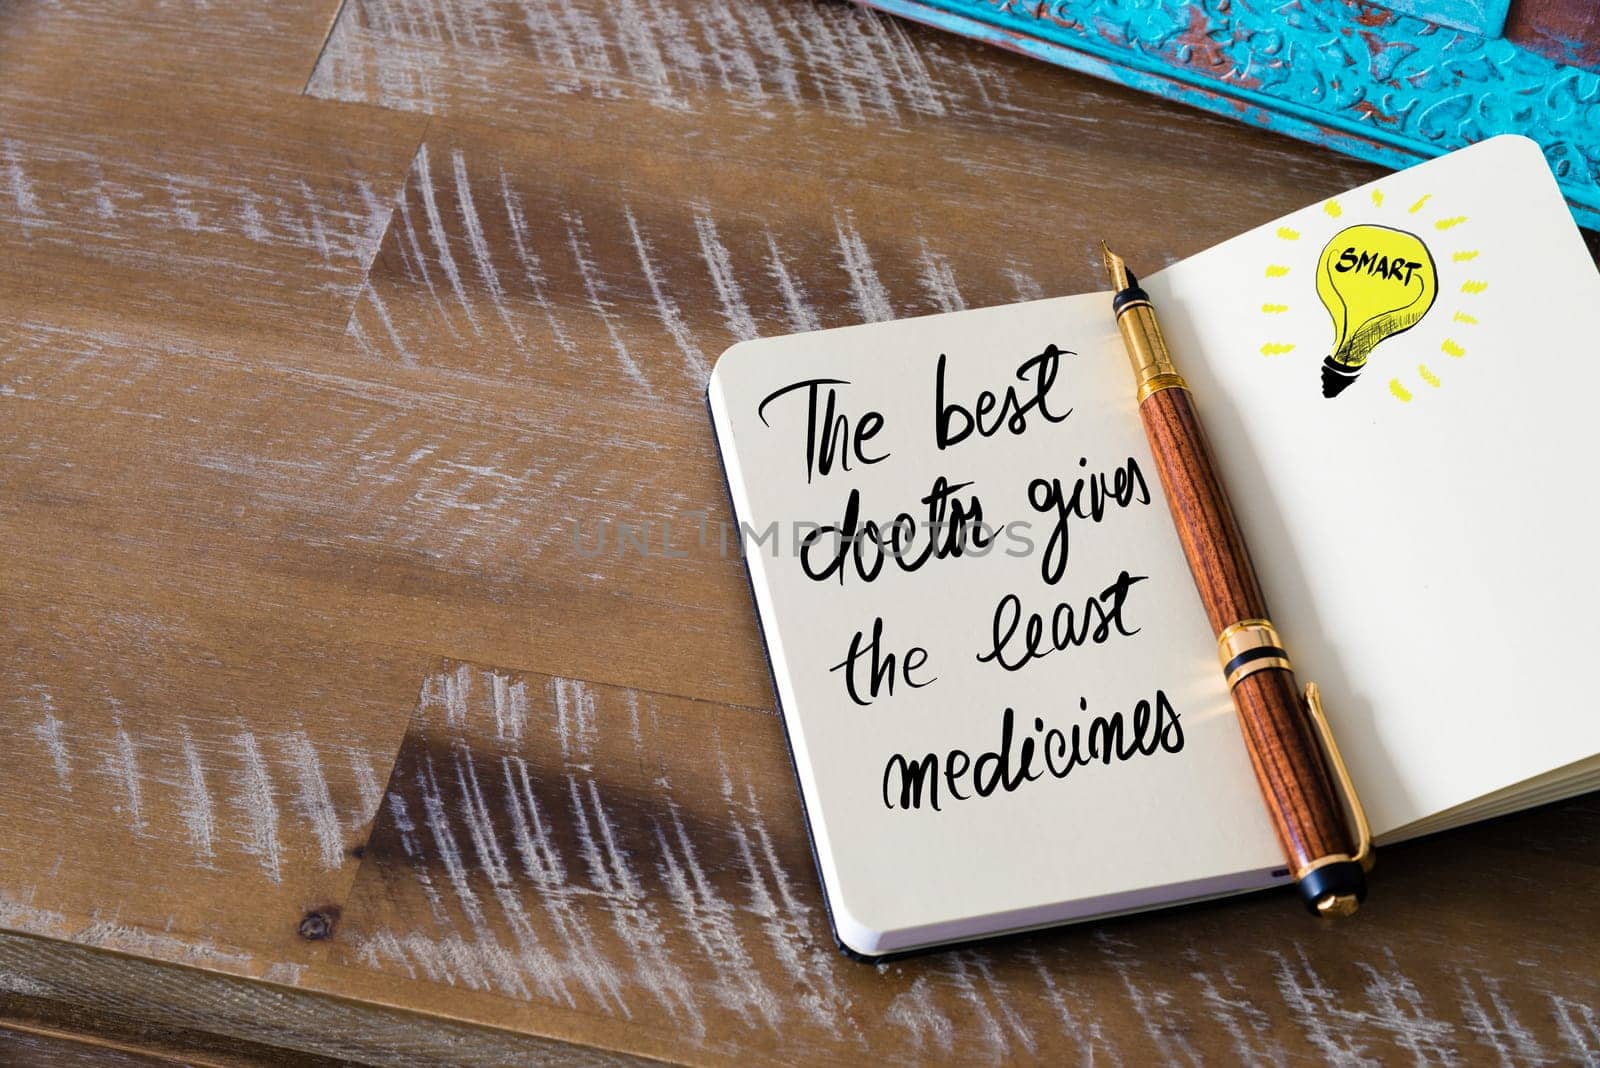 The best
doctor gives
the least
medicines
SMART
UNLIMPHOTOS